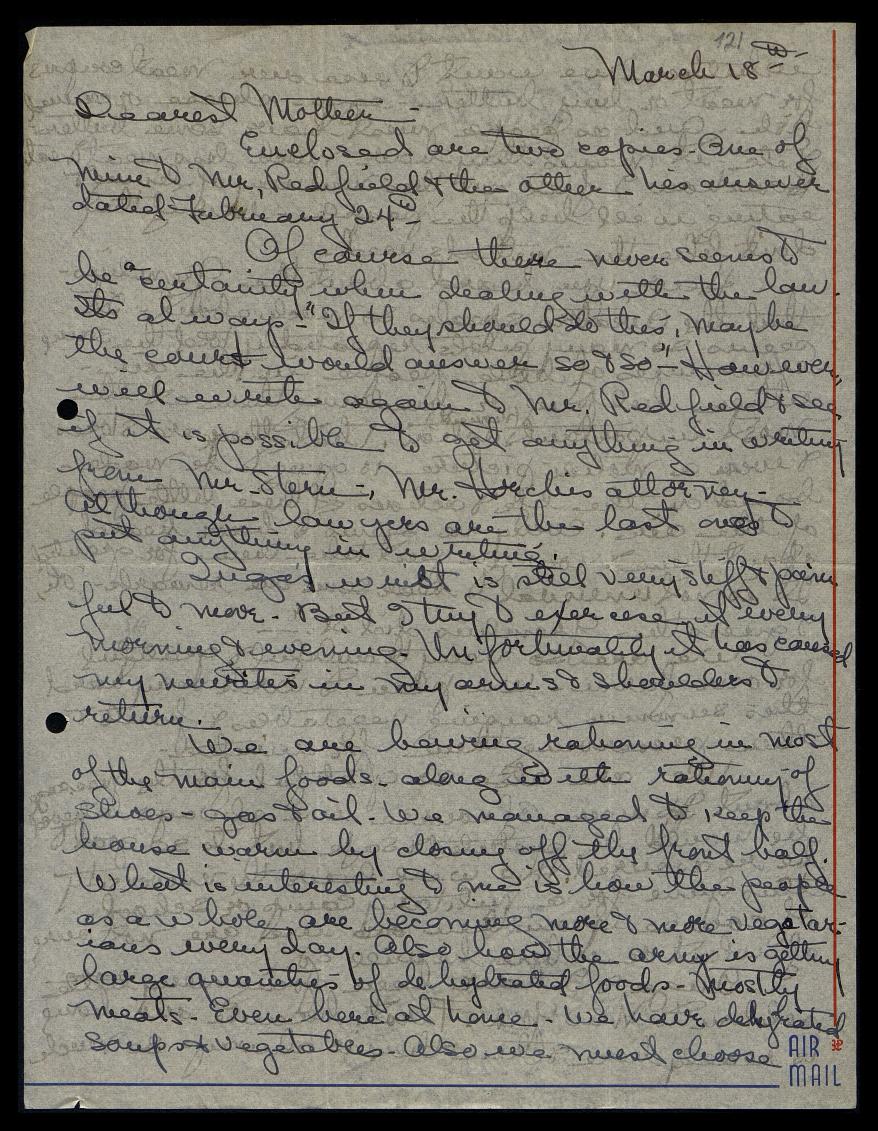 121
March 18th
Dearest Mother -
Enclosed are two copies - One of
mine to Mr. Redfield & the other his answer
dated February 24th -
Of course there never seems to
be a "certainity" when dealing with the law.
Its always - "If they should do this, maybe
the court would answer so & so" - However,
will write again to Mr. Redfield & see
if it is possible to get anything in writing
from Mr. Stern -, Mr. Horch's attorney -
Although lawyers are the last ones to
put anything in writing.
Inga's wrist is still very stiff & pain
ful to move - But I try to exercise it every
morning & evening - Unfortunately it has caused
my neuritis in my arms & shoulders to
return.
We are having rationing in most
of the main foods - along with rationing of
shoes - gas & oil. We managed to keep the
house warm by closing off the front half.
What is interesting to me is how the people
as a whole are becoming more & more vegetar-
ians every day. Also how the army is getting
large quantities of dehydrated foods - mostly
meats - Even here at home - we have dehydrated
soups & vegetables - Also we must choose
AIR
MAIL